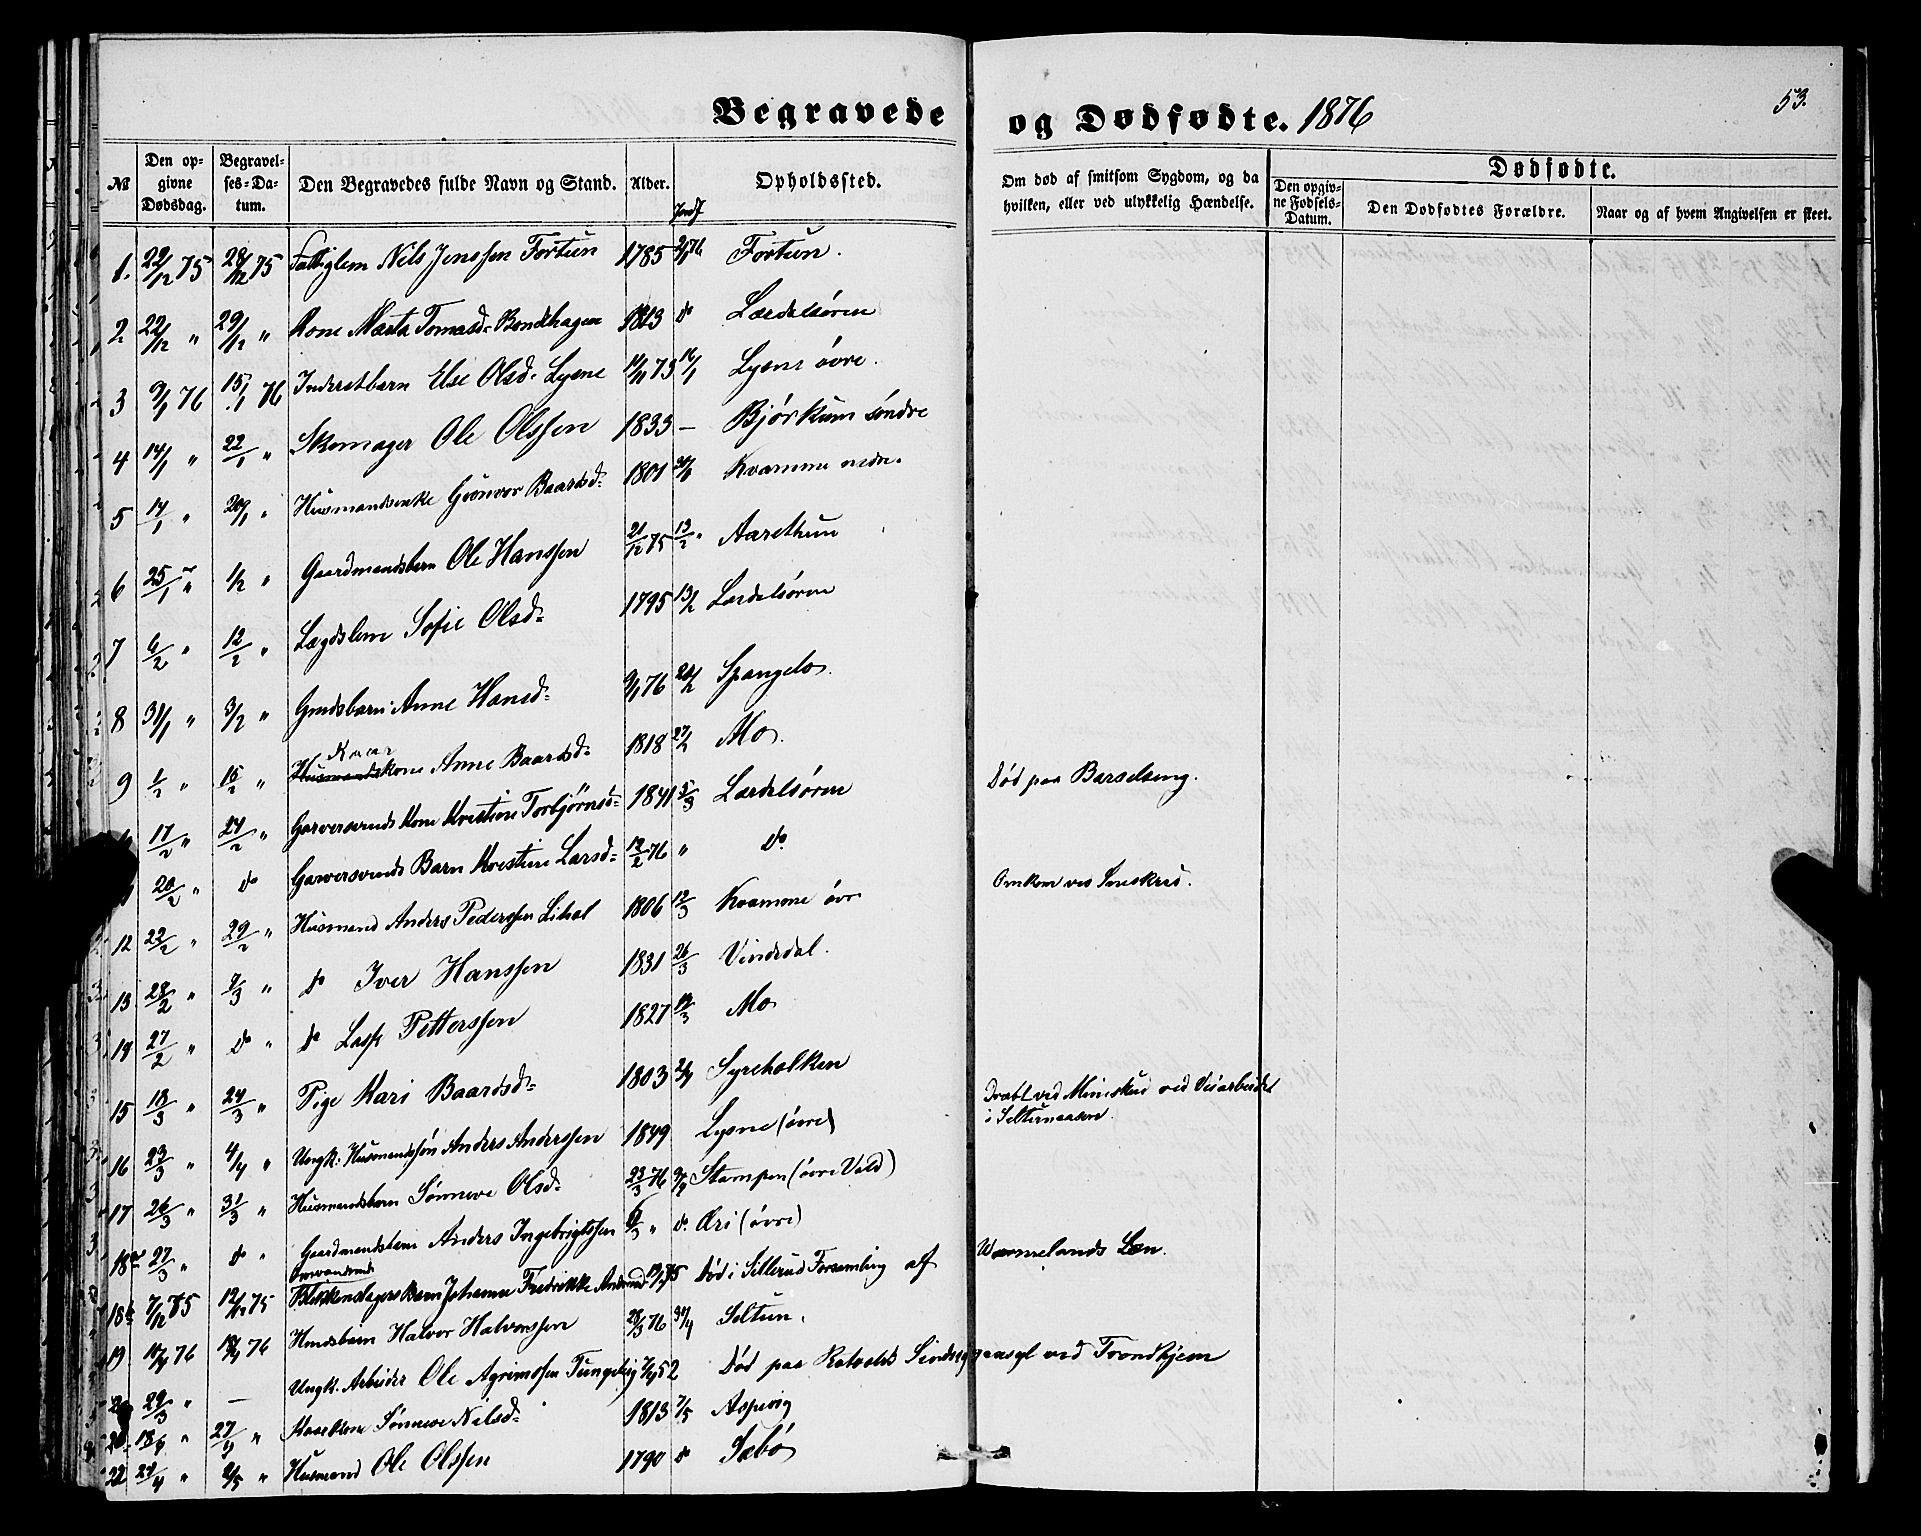 Begravede og Dødfødte. 1876
53.
№ Den opgivne Dødsdag. Begravelses-Datum. Den Begravedes fulde Navn og Stand. Alder. Jordf Opholdssted. Om død af smitsom Sygdom, og da hvilken, eller ved ulykkelig Hændelse. Dødfødte.
Den opgivne Fødsels-Datum. Den Dødfødtes Forældre. Naar og af hvem Angivelsen er skeet.
1. 22/12 75 28/12 75 Fattiglem Nils Jenssen Fortun 1785 2/1 76 Fortun.
2 22/12 " 29/12 " Kone Marta Tomasd. Bondhagen 1813 do Lærdalsøren
3 9/1 76 15/1 76 Inderstbarn Else Olsd. Lysne 14/11 73 16/1 Lysne øvre.
4 14/1 " 22/1 " Skomager Ole Olssen 1833 — Bjørkum søndre
5 14/1 " 20/1 " Husmandsenke Guonvor Baardsd. 1801 Kvamme nedr.
6 25/1 " 1/2 " Gaardmandsbarn Ole Hanssen 21/12 75 13/2 " Aarethun
7 6/2 " 12/2 " Lægdslem Sofie Olsd. 1795 13/2 Lærdalsøren
8 31/1 " 3/2 " Gmdsbarn Anne Hansd. 9/1 76 20/2 Spangelo.
9 1/2 " 15/2 " Husmandskone Kaar Anne Baardsd. 1818 27/2 Mo.
17/2 " 24/2 " Garversvends Kone Kristine Torbjørnsd. 1841 5/3 Lærdalsøren Død paa Barselseng.
20/2 " do Garversvends Barn Kristine Larsd. 12/2 76 " do
12 22/2 " 29/2 " Husmand Anders Pederssen Lihol 1806 12/3 Kvamme øvr Omkom ved Sneskred.
13 28/2 " 7/3 " do Iver Hanssen 1831 26/3 Vindedal.
14 27/2 " do " do Lasse Petterssen 1827 12/3 Mo
15 18/3 " 24/3 " Pige Kari Baardsd. 1803 2/4 Syreholken
16 23/3 " 4/4 " Ungk. Husmandssøn Anders Anderssen 1849 Lysne (øvre) Dræbt ved Mineskud ved Veiarbeidet
i Seltunaasen.
17 26/3 " 31/3 " Husmandsbarn Sønneve Olsd. 23/3 76 9/4 Stampen (øvre Vold)
18a 27/3 " do " Gaardmandsbarn Anders Ingebrigtssen /3 " do Eri (øvre)
18b 7/12 75 12/12 75 Omvandrende Blikkenslagers Barn Johanne Fredrikke Andersd. 75 Død i Sillerud Forsamling af Wermelands Læn.
19 76 76 Hmdsbarn Halvor Halvorssen 28/3 76 Seltun.
29/3 " — Ungk. Arbeider Ole Agrimssen Tungeteig 52 Død paa Rotvolds Sindssygeasyl ved Trondhjem
18/4 " 27/4 " Kaarkone Sønneve Nilsd. 1813 7/5 Aspevig
22 24/4 " 2/5 " Husmand Ole Olssen 1790 do Sæbø